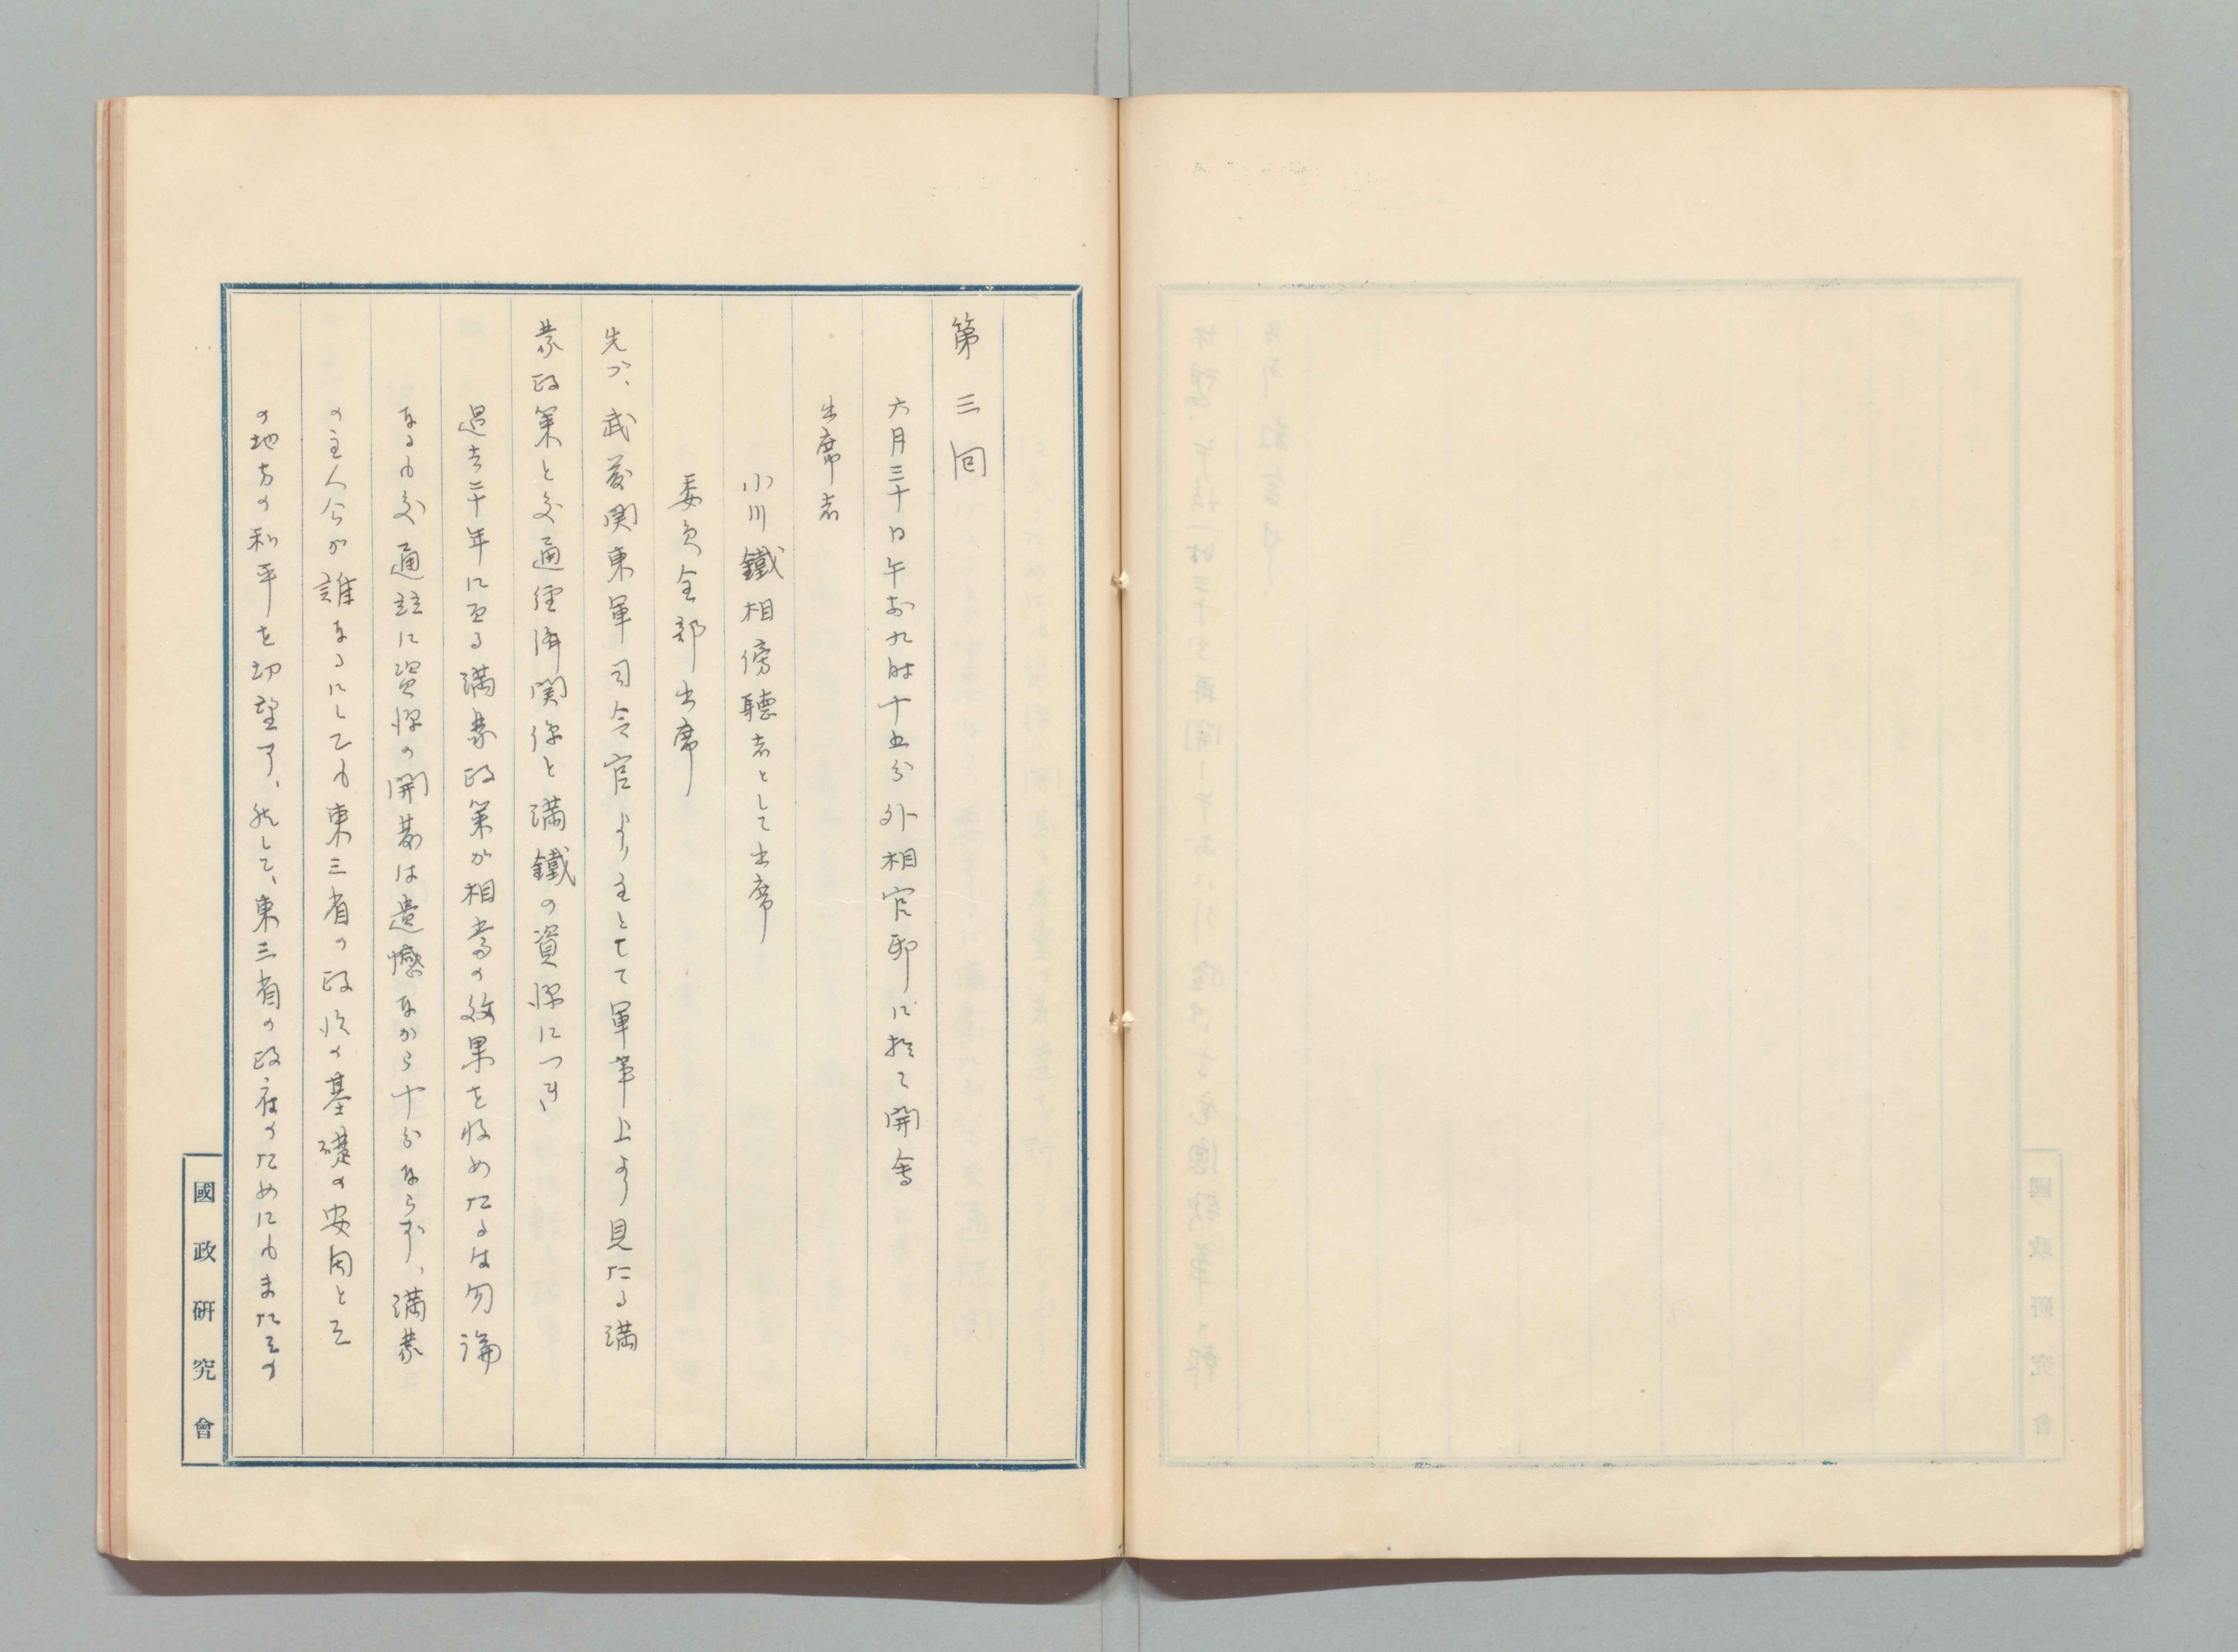 第三回
六月三十日午前九時十五分外相官邸に於て開会
出席者
小川鐵相傍聽者として出席
委員全部出席
先づ、武藤関東軍司令官より主として軍事上より見たる満
蒙政策と交通経済関係と満鐵の資源につき
過去二十年に亘る満蒙政策が相当の効果を収めたるは勿論
なるも交通並に資源の開発は遺憾ながら十分ならず、満蒙
の主人公が誰なるにしても東三省の政情の基礎の安固とそ
の地方の和平を切望す、然して、東三省の政府のためにもまたその
國政研究會